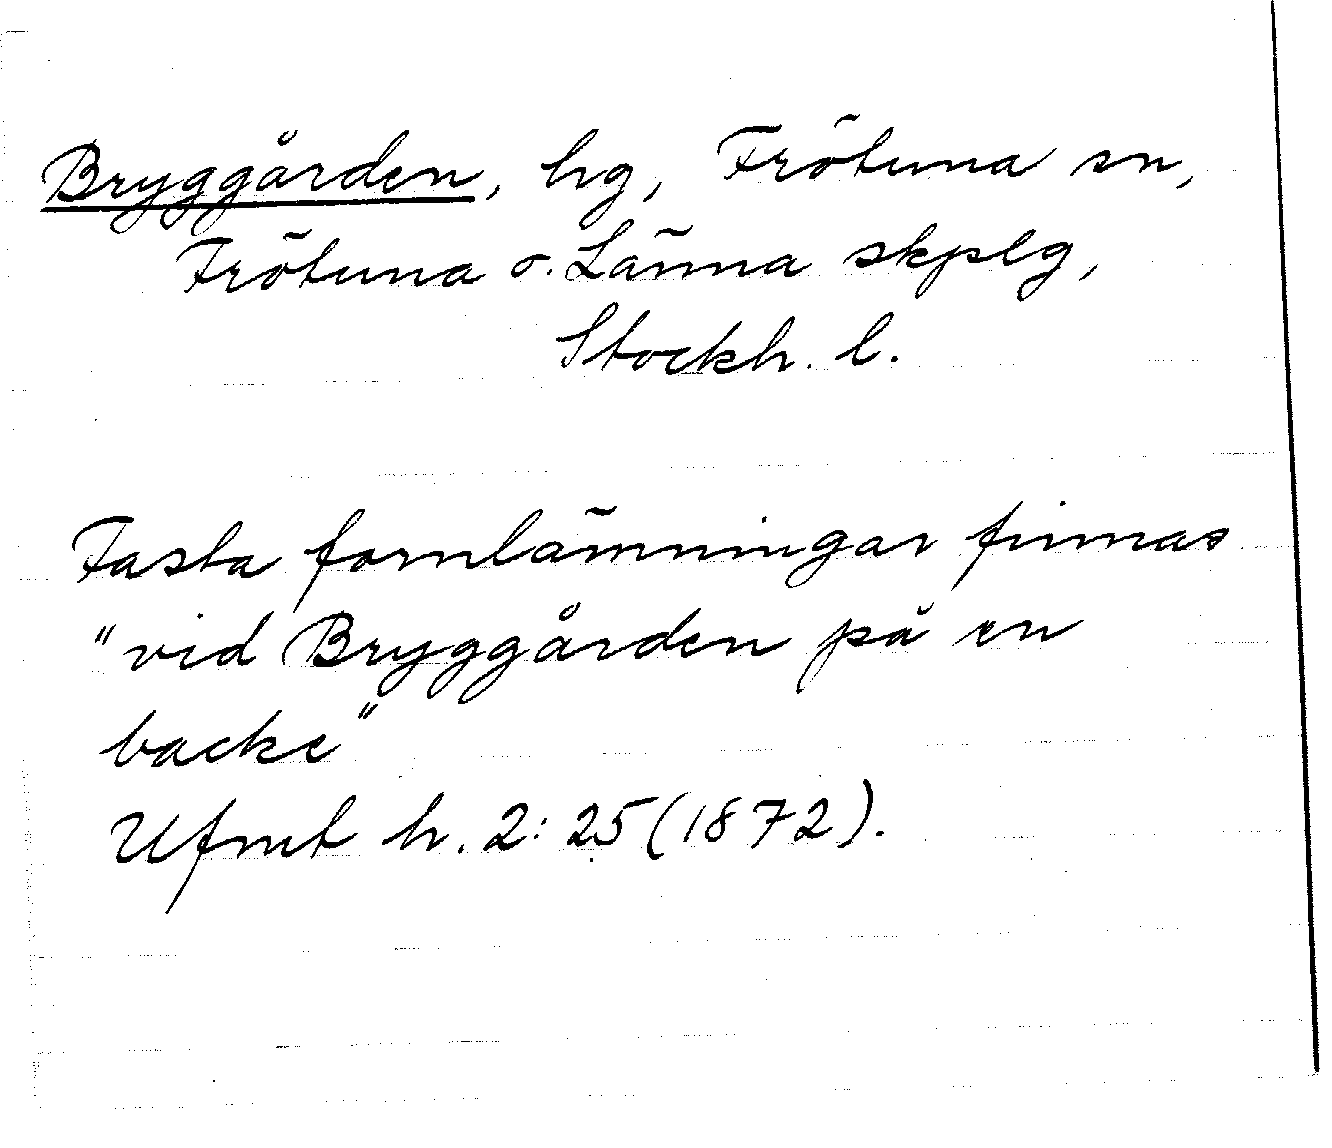 Bryggården, hg, Frötuna sn,
Frötuna o. Länna skplg,
Stockh. l.
Fasta fornlämningar finnas
"vid Bryggården på en
backe"
Ufmt h. 2: 25 (1872).